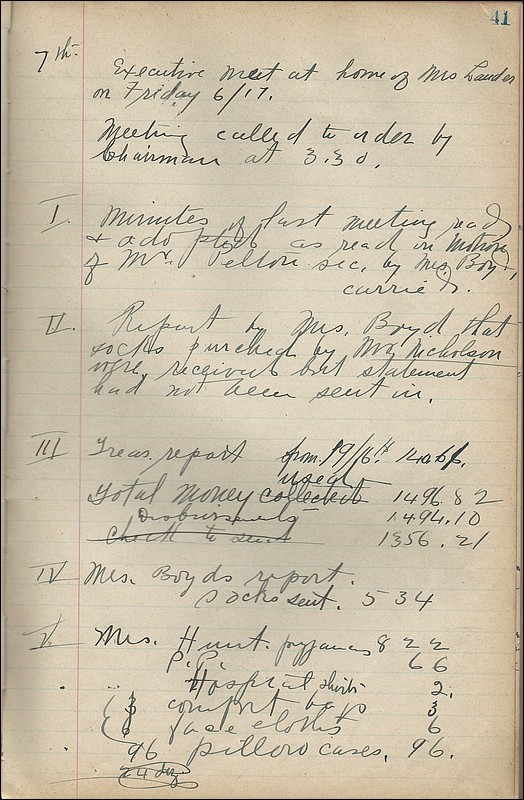 41
7th
Executive meet at home of Mrs Lauder
on Friday 6/17.
Meeting called to order by
Chairman at 3.30.
I. Minutes of last meeting read
& adopted as read on Motion
of Mrs. Pelton sec. by Mrs. Boyd,
carried.
II. Report by Mrs. Boyd that
socks purchased by Mrs Nicholson
were received but statement
had not been sent in.
III Treas. report from 19/16th
Total Money collected 1496.82
Disbursments 1494.10
check to send 1356.21
IV Mrs. Boyds report.
socks sent. 534
V. Mrs. Hunt. pyjamas 822
P.P. 66
Hospital shirts 2.
3 comfort bags 3
6 face cloths 6
96 pillow cases. 96.
24 doz